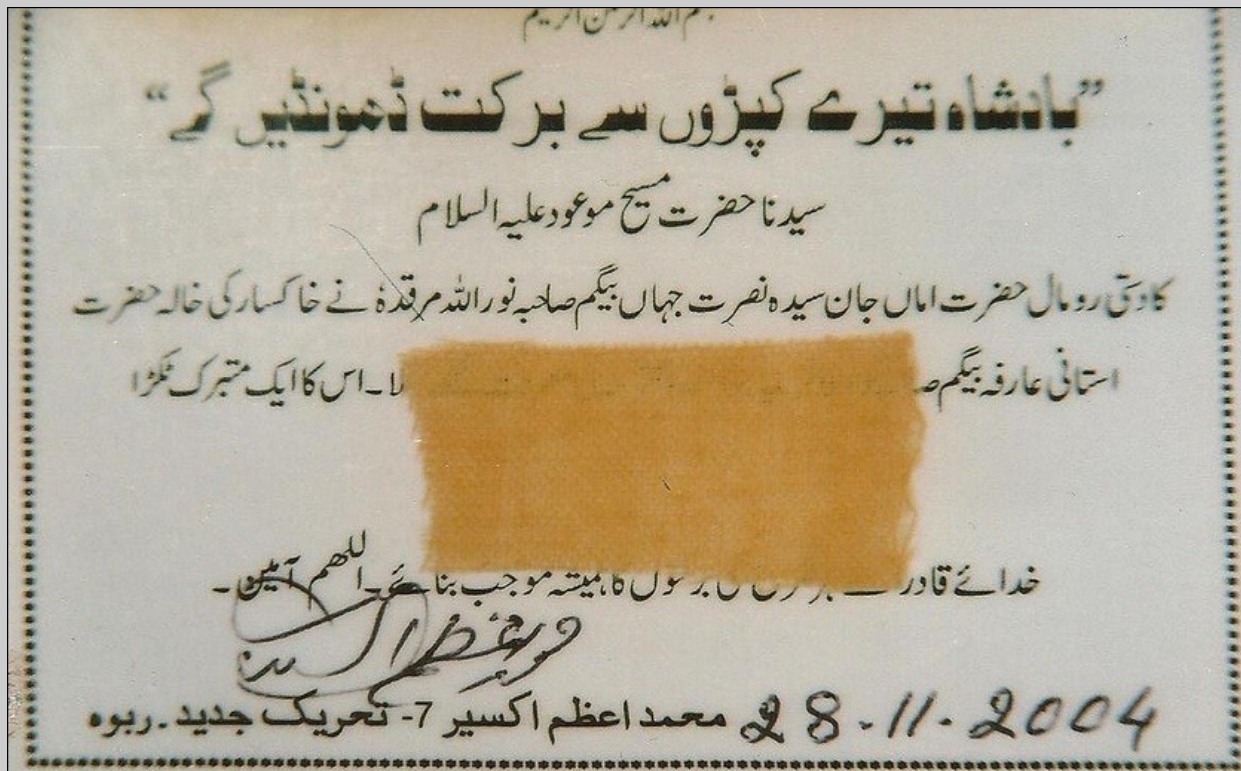 بسم اللہ الرحمن الرحیم
”بادشاہ تیرے کپڑوں سے برکت ڈھونڈیں گے“
سیدنا حضرت مسیح موعود علیہ السلام
کا دستی رومال حضرت اماں جان سیدہ نصرت جہاں بیگم صاحبہ نور اللہ مرقدہٗ نے خاکسار کی خالہ حضرت
استانی عارفہ بیگم لا۔ اس کا ایک متبرک ٹکڑا
خدائے قادر کا ہمیشہ موجب بنائے۔ اللھم آمین۔
محمد اعظم اکسیر 7- تحریک جدید۔ ربوہ 28-11-2004